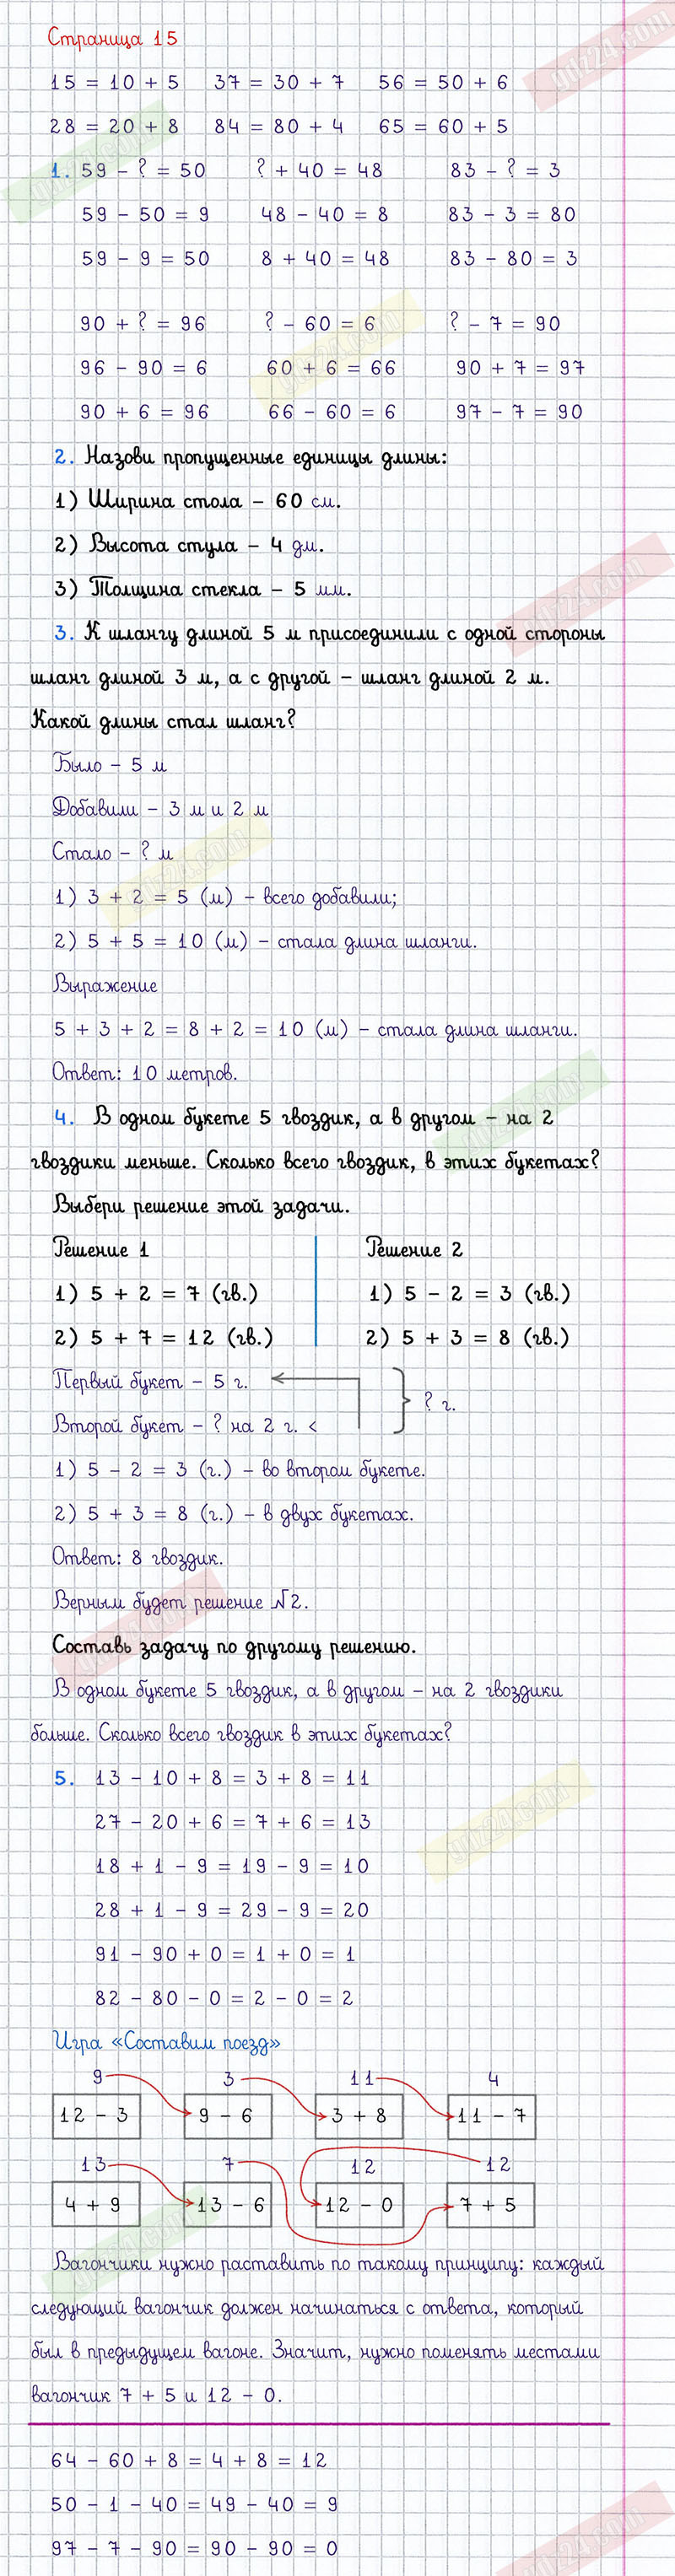 Страница 15
15 = 10 + 5 37 = 30 + 7 56 = 50 + 6
28 = 20 + 8 84 = 80 + 4 65 = 60 + 5
1. 59 - ? = 50 ? + 40 = 48 83 - ? = 3
59 - 50 = 9 48 - 40 = 8 83 - 3 = 80
59 - 9 = 50 8 + 40 = 48 83 - 80 = 3
90 + ? = 96 ? - 60 = 6 ? - 7 = 90
96 - 90 = 6 60 + 6 = 66 90 + 7 = 97
90 + 6 = 96 66 - 60 = 6 97 - 7 = 90
2. Назови пропущенные единицы длины:
1) Ширина стола – 60 см.
2) Высота стула – 4 дм.
3) Толщина стекла – 5 мм.
3. К шлангу длиной 5 м присоединили с одной стороны
шланг длиной 3 м, а с другой – шланг длиной 2 м.
Какой длины стал шланг?
Было – 5 м
Добавили – 3 м и 2 м
Стало – ? м
1) 3 + 2 = 5 (м) – всего добавили;
2) 5 + 5 = 10 (м) – стала длина шланги.
Выражение
5 + 3 + 2 = 8 + 2 = 10 (м) – стала длина шланги.
Ответ: 10 метров.
4. В одном букете 5 гвоздик, а в другом – на 2
гвоздики меньше. Сколько всего гвоздик, в этих букетах?
Выбери решение этой задачи.
Решение 1 Решение 2
1) 5 + 2 = 7 (гв.) 1) 5 - 2 = 3 (гв.)
2) 5 + 7 = 12 (гв.) 2) 5 + 3 = 8 (гв.)
Первый букет – 5 г.
? г.
Второй букет – ? на 2 г. <
1) 5 - 2 = 3 (г.) – во втором букете.
2) 5 + 3 = 8 (г.) – в двух букетах.
Ответ: 8 гвоздик.
Верным будет решение №2.
Составь задачу по другому решению.
В одном букете 5 гвоздик, а в другом – на 2 гвоздики
больше. Сколько всего гвоздик в этих букетах?
5. 13 - 10 + 8 = 3 + 8 = 11
27 - 20 + 6 = 7 + 6 = 13
18 + 1 - 9 = 19 - 9 = 10
28 + 1 - 9 = 29 - 9 = 20
91 - 90 + 0 = 1 + 0 = 1
82 - 80 - 0 = 2 - 0 = 2
Игра «Составим поезд»
9 3 11 4
12 - 3 9 - 6 3 + 8 11 - 7
13 7 12 12
4 + 9 13 - 6 12 - 0 7 + 5
Вагончики нужно расставить по такому принципу: каждый
следующий вагончик должен начинаться с ответа, который
был в предыдущем вагоне. Значит, нужно поменять местами
вагончик 7 + 5 и 12 - 0.
64 - 60 + 8 = 4 + 8 = 12
50 - 1 - 40 = 49 - 40 = 9
97 - 7 - 90 = 90 - 90 = 0
gdz24.com
gdz24.com
gdz24.com
gdz24.com
gdz24.com
gdz24.com
gdz24.com
gdz24.com
gdz24.com
gdz24.com